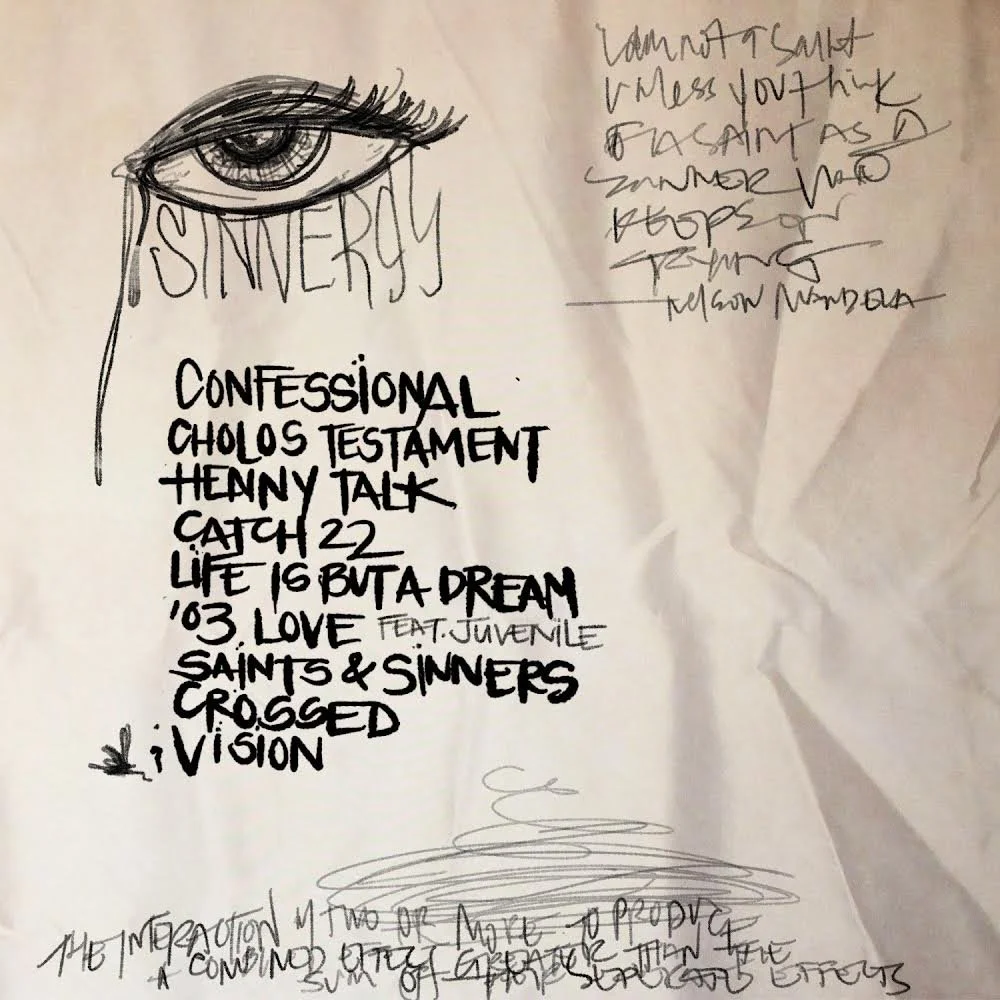 I am not a saint
unless you think
OF A SAINT AS A
SINNER WHO
KEEPS ON
TRYING
NELSON MANDELA
SINNERGY
CONFESSIONAL
CHOLOS TESTAMENT
HENNY TALK
CATCH 22
LIFE IS BUT A DREAM
'03 LOVE FEAT. JUVENILE
SAINTS & SINNERS
CROSSED
VISION
THE INTERACTION OF TWO OR MORE TO PRODUCE
A COMBINED EFFECT GREATER THAN THE
SUM OF THEIR SEPERATE EFFECTS